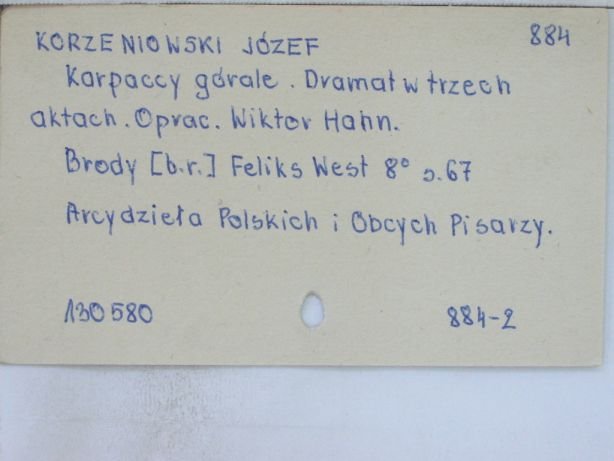 884
KORZENIOWSKI JÓZEF
Karpaccy górale. Dramat w trzech
aktach. Oprac. Wiktor Hahn.
Brody [b.r.] Feliks West 8° s.67
Arcydzieła Polskich i Obcych Pisarzy.
130580
884-2